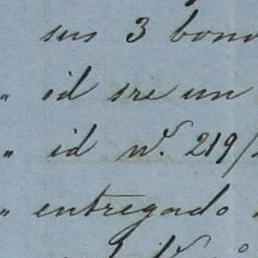 sus 3 bono
" id sre un
" id nº. 219/
" entregado